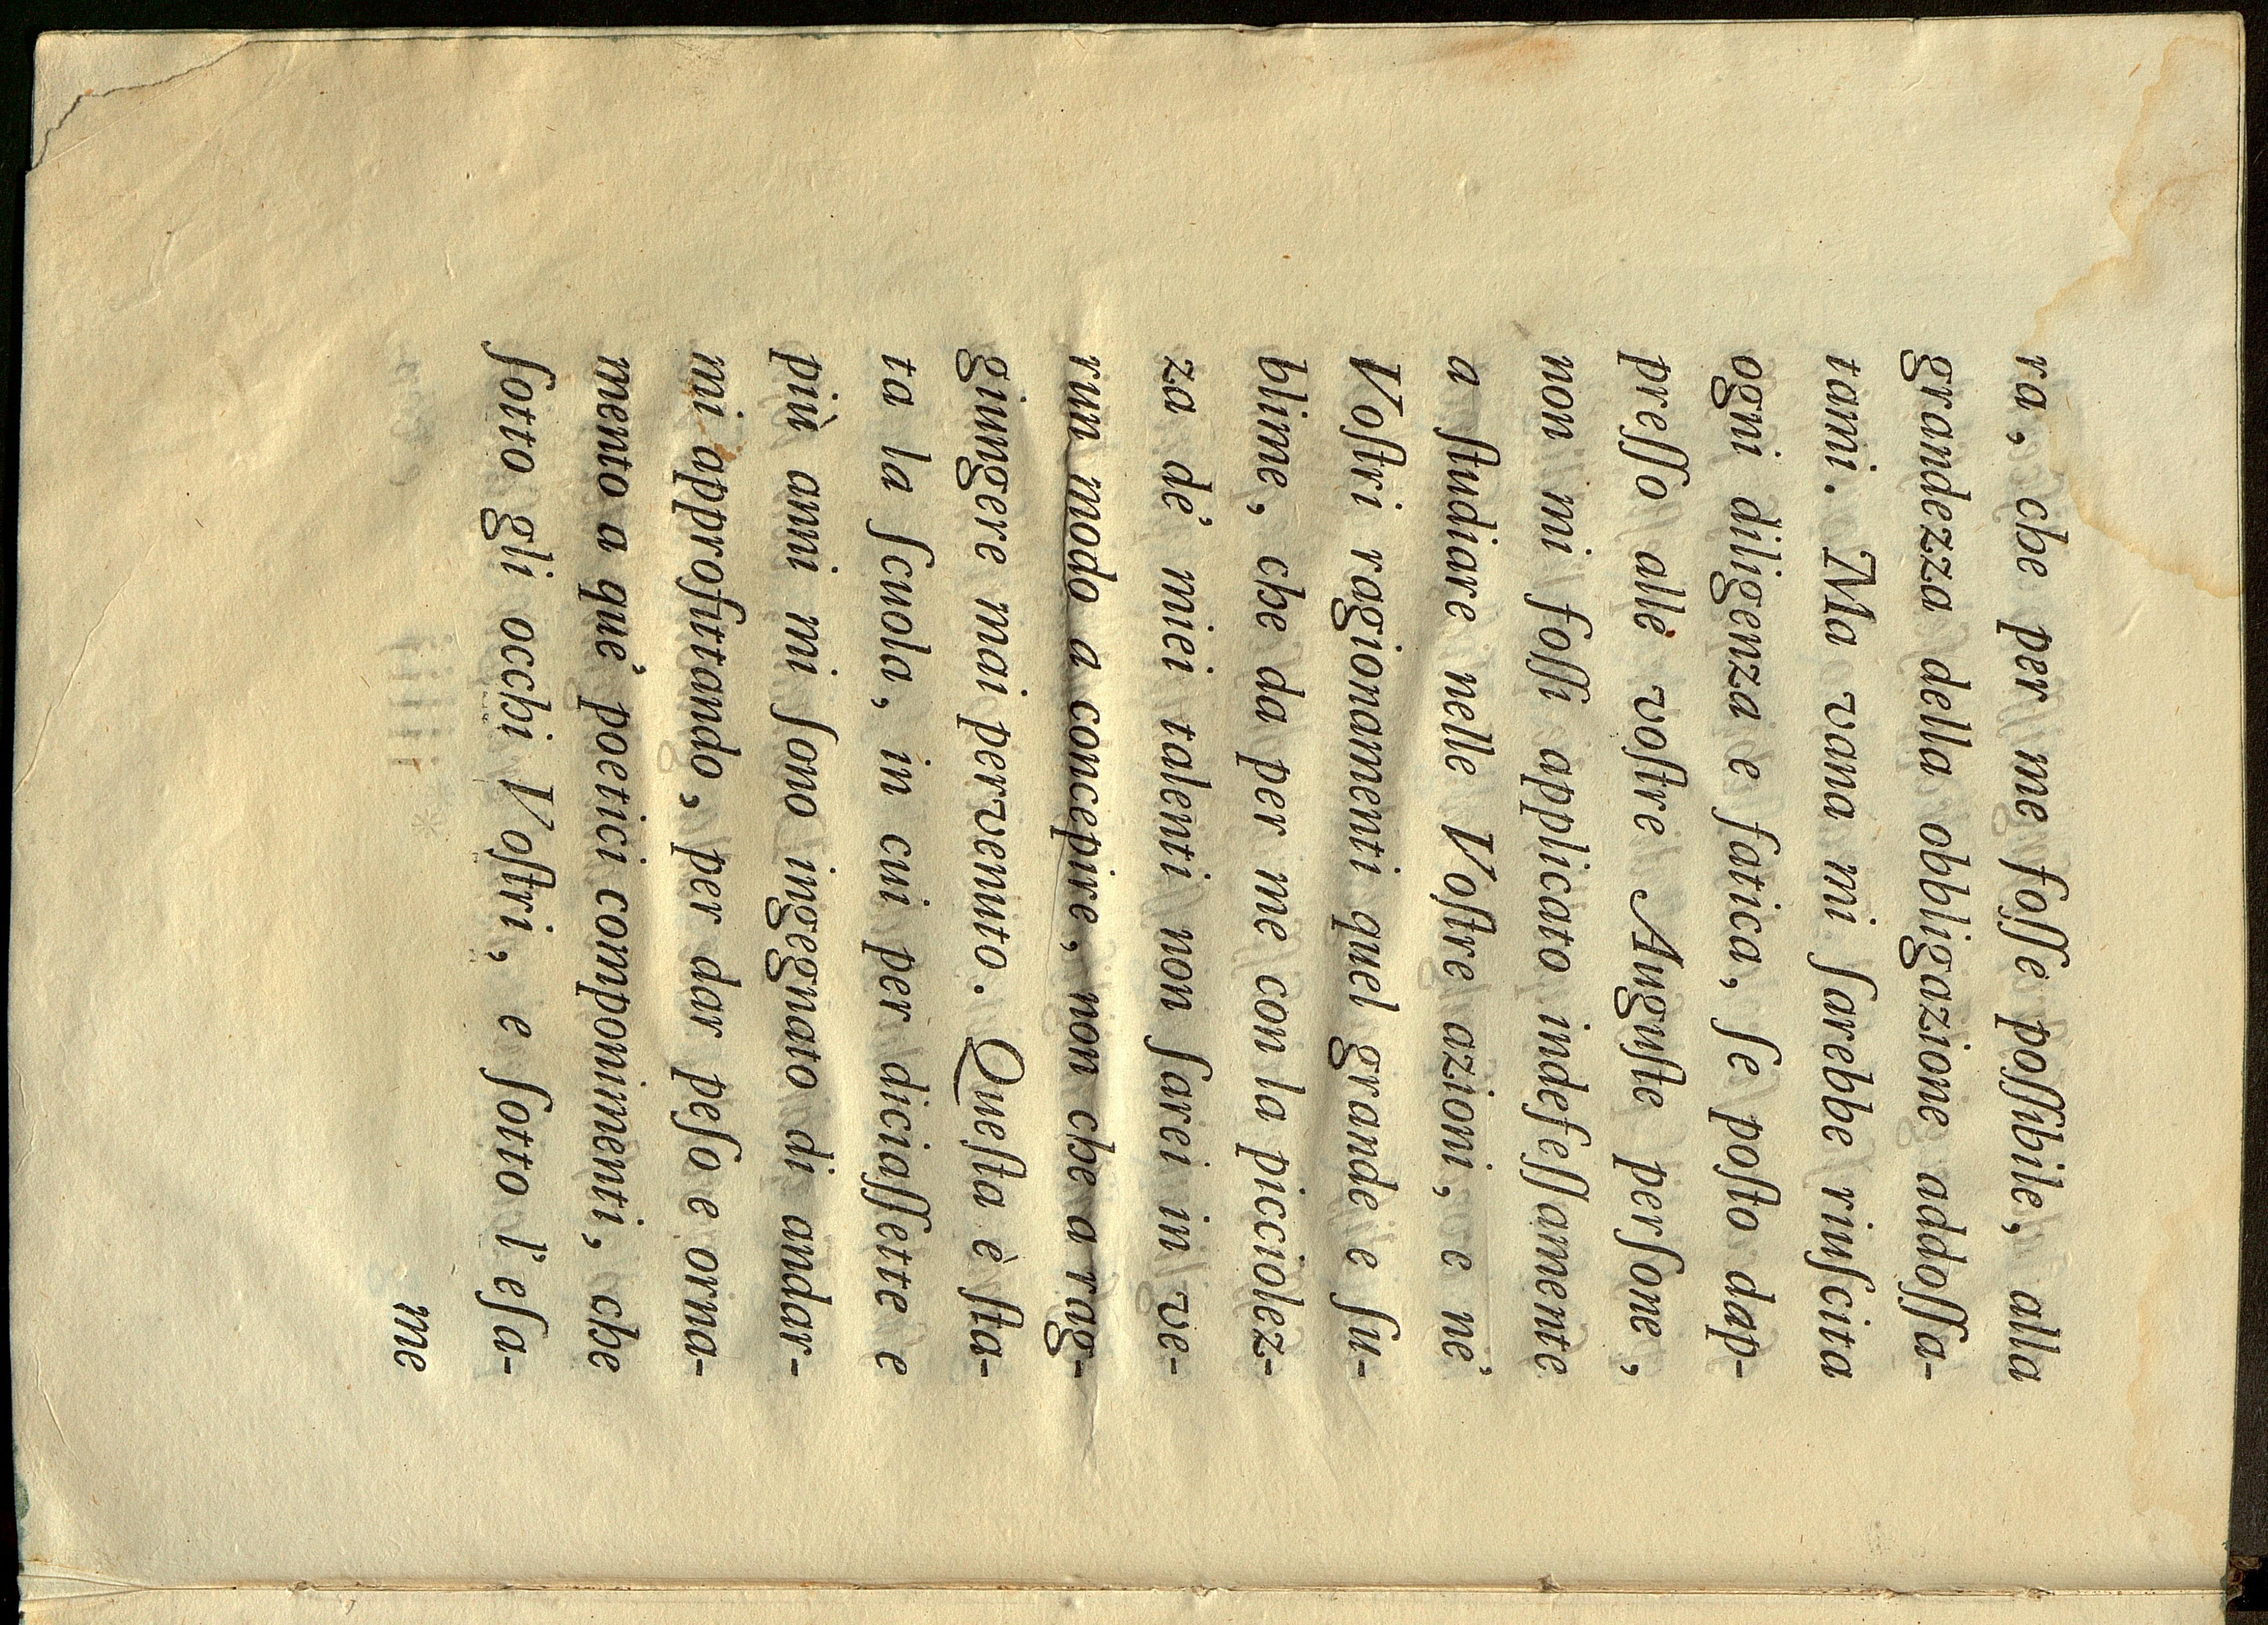 ra, che per me foſſe poſſibile, alla
grandezza della obbligazione addoſſa-
tami. Ma vana mi ſarebbe riuſcita
ogni diligenza e fatica, ſe poſto dap-
preſſo alle voſtre Auguſte perſone,
non mi foſſi applicato indefeſſamente
a ſtudiare nelle Voſtre azioni, e ne'
Voſtri ragionamenti quel grande e ſu-
blime, che da per me con la picciolez-
za de' miei talenti non ſarei in ve-
run modo a concepire, non che a rag-
giungere mai pervenuto. Queſta è ſta-
ta la ſcuola, in cui per diciaſſette e
più anni mi ſono ingegnato di andar-
mi approfittando, per dar peſo e orna-
mento a que' poetici componimenti, che
ſotto gli occhi Voſtri, e ſotto l'eſa-
me